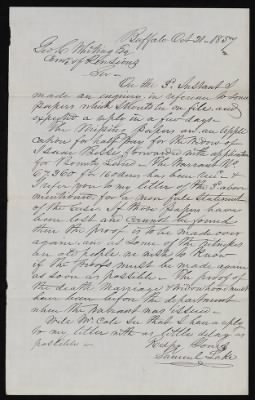 Buffalo Oct 21. 1857
Geo C Whiting Esq
Com. of Pensions
Sir
On the 3d Instant I
made an enquiry in reference to some
papers which should be on file, and
expected a reply in a few days.
The missing papers on an appli
cation for half pay for the widow of
Isaac forwarded with application
for Bounty Land. The Warrant No
67,360 for 160 acres has been rec. &
I refer you to my letter of the 3d above
mentioned, for a more full statement
of the case. If those papers have
been lost and cannot be found
then the proof is to be made over
again, and as some of the witnesses
are old people, we wish to know
if the proofs must be made again
as soon as possible. The proof of
the death, marriage & widowhood must
have been before the department
when the warrant was issued.
Will Mr Cole see that I have a reply
to my letter with as little delay as
possible.
Respy Yours
Samuel Lake